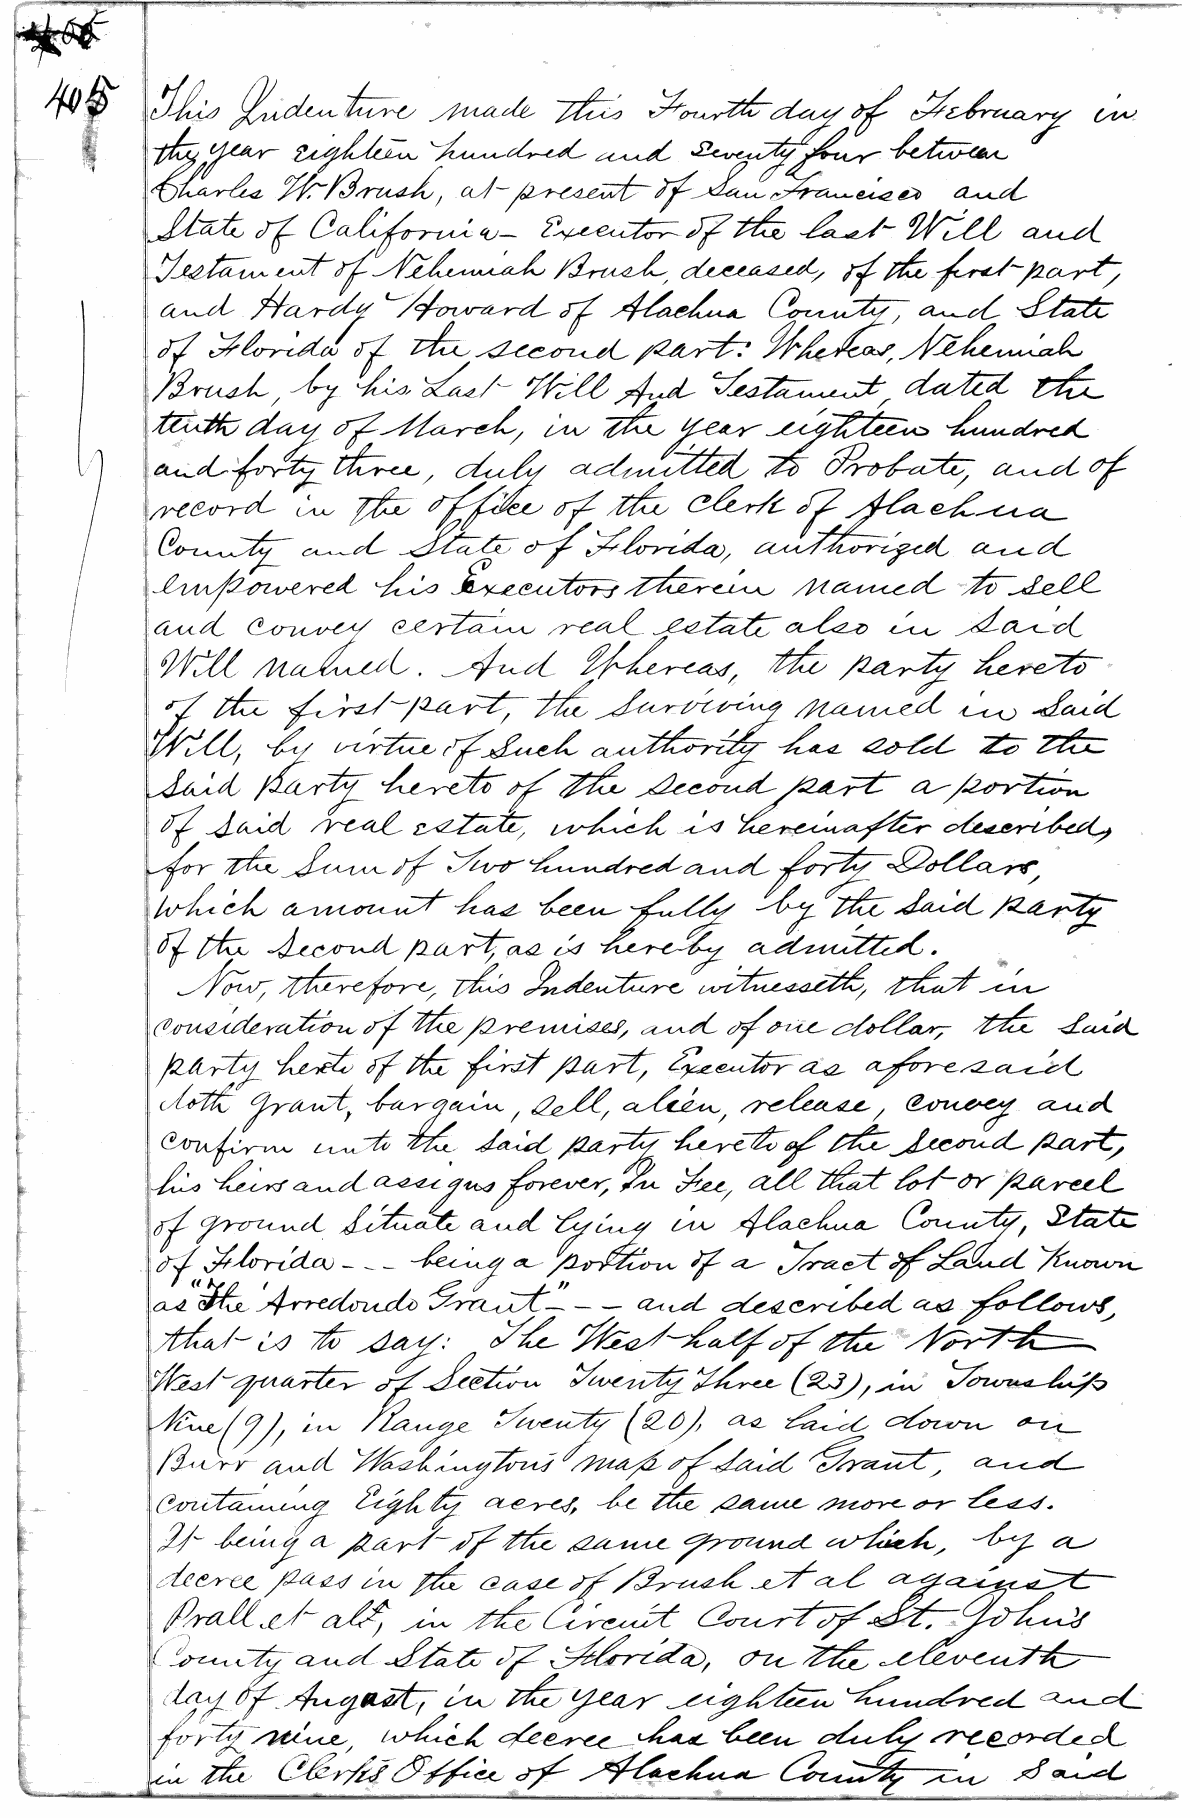 405
This Indenture made this Fourth day of February in
the year eighteen hundred and seventy four between
Charles W. Brush, at present of San Francisco and
State of California - Executor of the last Will and
Testament of Nehemiah Brush, deceased, of the first part,
and Hardy Howard of Alachua County, and State
of Florida of the second part: Whereas, Nehemiah
Brush, by his Last Will And Testament, dated the
tenth day of March, in the year eighteen hundred
and forty three, duly admitted to Probate, and of
record in the office of the Clerk of Alachua
County and State of Florida, authorized and
empowered his Executors therein named to sell
and convey certain real estate also in said
Will named. And Whereas, the party hereto
of the first part, the surviving named in said
Will, by virtue of such authority has sold to the
said party hereto of the second part a portion
of said real estate, which is hereinafter described,
for the sum of Two hundred and forty Dollars,
which amount has been fully by the said party
of the second part, as is hereby admitted.
Now, therefore, this Indenture witnesseth, that in
consideration of the premises, and of one dollar, the said
party hereto of the first part, Executor as aforesaid
doth grant, bargain, sell, alien, release, convey and
confirm unto the said party hereto of the second part,
his heirs and assigns forever, In Fee, all that lot or parcel
of ground situate and lying in Alachua County, State
of Florida - - - being a portion of a Tract of Land Known
as "The Arredondo Grant" - - - and described as follows,
that is to say: The West half of the North
West quarter of Section Twenty Three (23), in Township
Nine (9), in Range Twenty (20), as laid down on
Burr and Washington's map of said Grant, and
containing Eighty acres, be the same more or less.
It being a part of the same ground which, by a
decree pass in the case of Brush et al against
Prall et als, in the Circuit Court of St. John's
County and State of Florida, on the eleventh
day of August, in the year eighteen hundred and
forty nine, which decree has been duly recorded
in the Clerk's Office of Alachua County in said